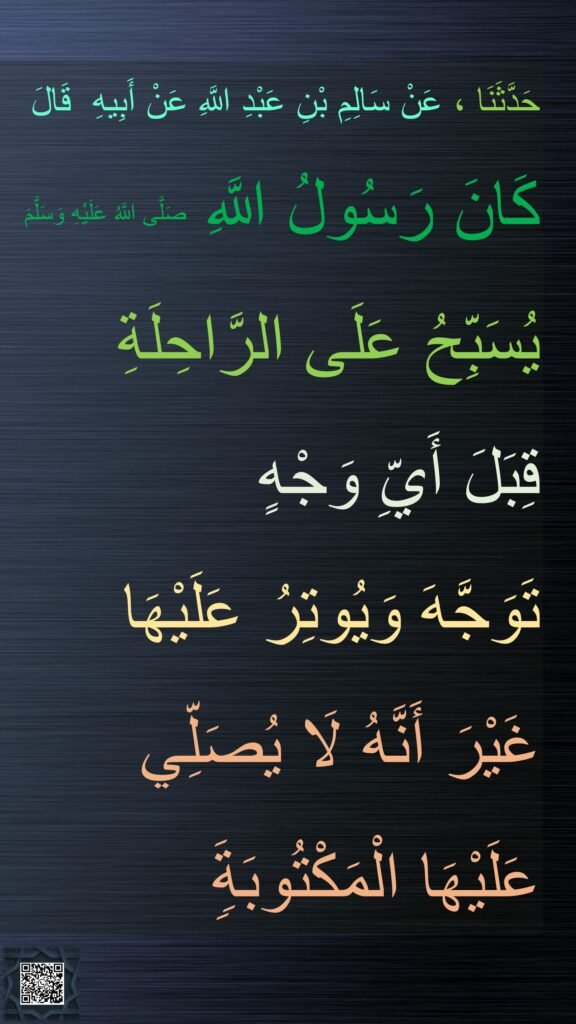 حَدَّثَنَا ، عَنْ سَالِمِ بْنِ عَبْدِ اللَّهِ عَنْ أَبِيهِ قَالَ
كَانَ رَسُولُ اللَّهِ صَلَّى اللَّهُ عَلَيْهِ وَسَلَّمَ
يُسَبِّحُ عَلَى الرَّاحِلَةِ
قِبَلَ أَيِّ وَجْهٍ
تَوَجَّهَ وَيُوتِرُ عَلَيْهَا
غَيْرَ أَنَّهُ لَا يُصَلِّي
عَلَيْهَا الْمَكْتُوبَةَِ